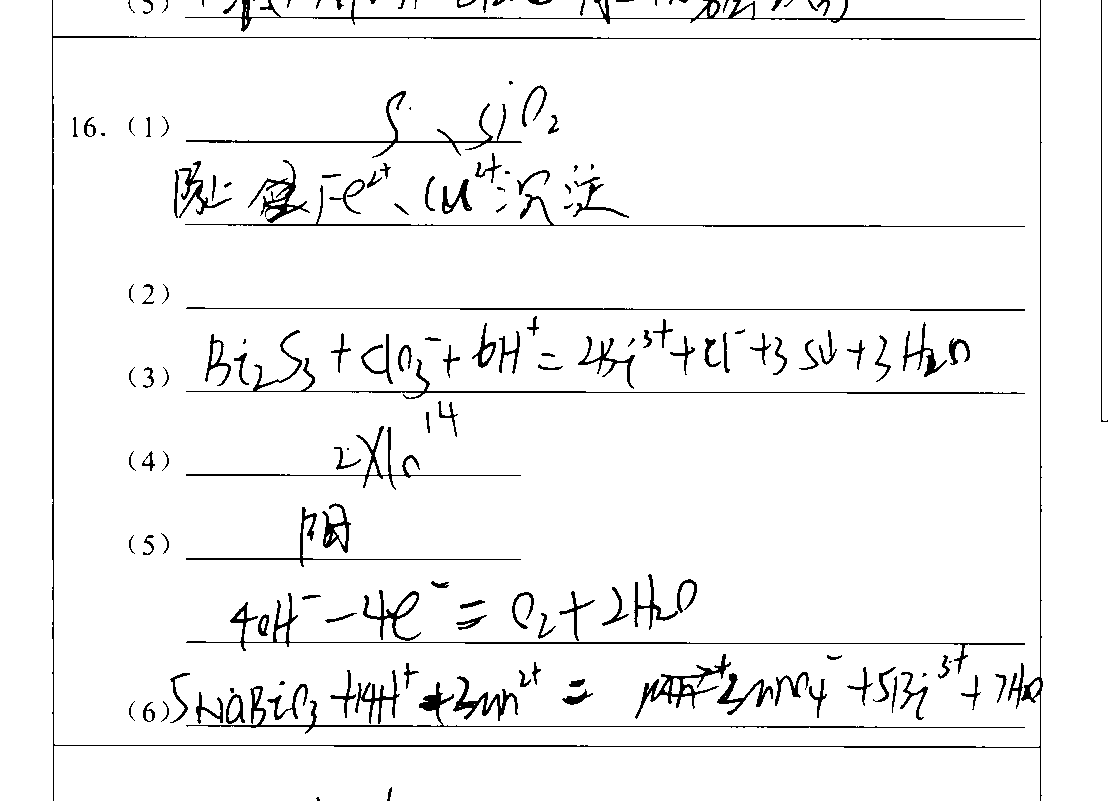 (5)
16. (1) S、SiO₂
防止 Fe²⁺、Cu²⁺沉淀
(2)
(3) Bi₂S₃ + ClO₃⁻ + 6H⁺ = 2Bi³⁺ + Cl⁻ + 3S↓ + 3H₂O
(4) 2×10¹⁴
(5) 阴
4OH⁻ - 4e⁻ = O₂ + 2H₂O
(6) 5NaBiO₃ + 14H⁺ + 2Mn²⁺ = 2MnO₄⁻ + 5Bi³⁺ + 7H₂O